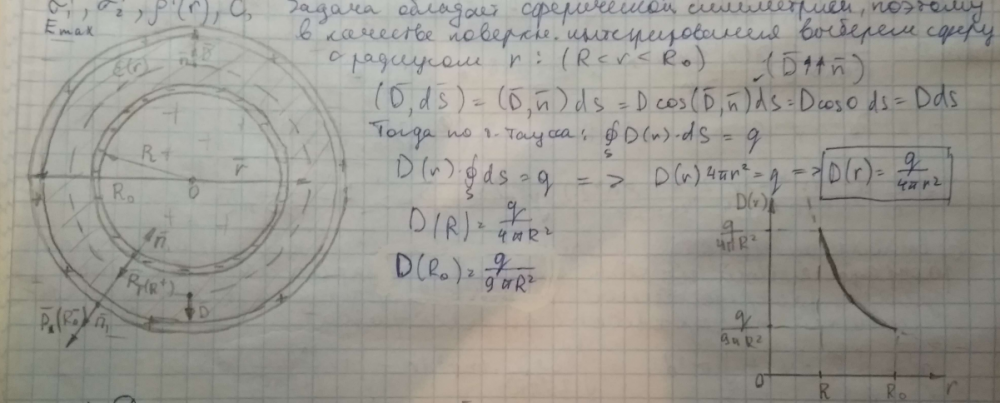 σ₁', σ₂', ρ'(r), C, Задача обладает сферической симметрией, поэтому
E max
в качестве поверхн. интегрирования выберем сферу
с радиусом r: (R < r < R₀) (D̄↑↑n̄)
(D̄, ds̄) = (D̄, n̄) ds = D cos(D̄, n̄) ds = D cos0 ds = D ds
Тогда по т. Гаусса: ∮ D(r)·ds = q
S
D(r)·∮ ds = q => D(r) 4πr² = q => D(r) = q/4πr²
S
D(R) = q/4πR²
D(R₀) = q/9πR²
ε(r)
R
r̄
R₀
0
n̄
D
n̄₁
D(r)
q/4πR²
q/9πR²
0
R
R₀
r